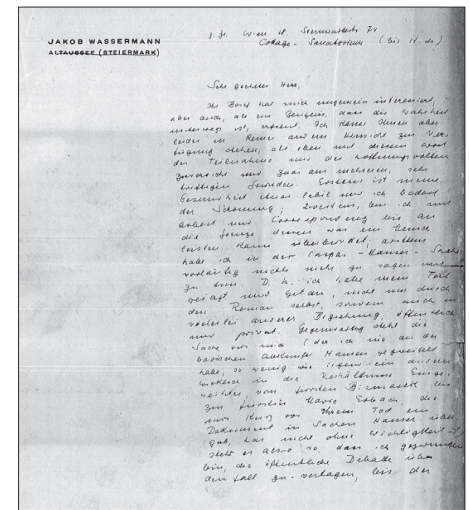 JAKOB WASSERMANN
ALTAUSSEE (STEIERMARK)
z. Zt. Wien 18. Sternwartestr. 74
Cottage-Sanatorium (bis 14. ds)
Sehr geehrter Herr,
Ihr Brief hat mich ungemein interessiert,
aber auch, als ein Zeugnis, dass die Wahrheit
unterwegs ist, erfreut. Ich kann Ihnen aber
leider in keiner andern Hinsicht zur Ver-
fügung stehen, als eben mit diesem Wort
der Teilnahme und der hoffnungsvollen
Zuversicht und zwar aus mehreren, sehr
triftigen Gründen. Erstens ist meine
Gesundheit etwas labil und ich bedarf
der Schonung, zweitens, bin ich mit
Arbeit und Correspondenz bis an
die Grenze dessen was ein Mensch
leisten kann überbürdet, drittens
habe ich in der Caspar-Hauser-Sache
vorläufig nichts mehr zu sagen
D. h. ich habe mein Teil
gesagt und getan, nicht nur durch
den Roman selbst, sondern auch in
vielerlei anderer Beziehung, öffentlich
und privat. Gegenwärtig steht die
Sache vor mir (der ich nie an der
badischen Abkunft Hausers gezweifelt
habe, so wenig wie irgend ein andrer
wirklich in die Verhältnisse Einge-
weihter, vom Fürsten Bismarck bis
zur Fürstin Marie Erbach, die
mir kurz vor ihrem Tod ein
Dokument in Sachen Hauser über-
gab, das nicht ohne Wichtigkeit ist
steht es also so, dass ich gezwungen
bin, die öffentliche Debatte über
den Fall zu vertagen, bis der